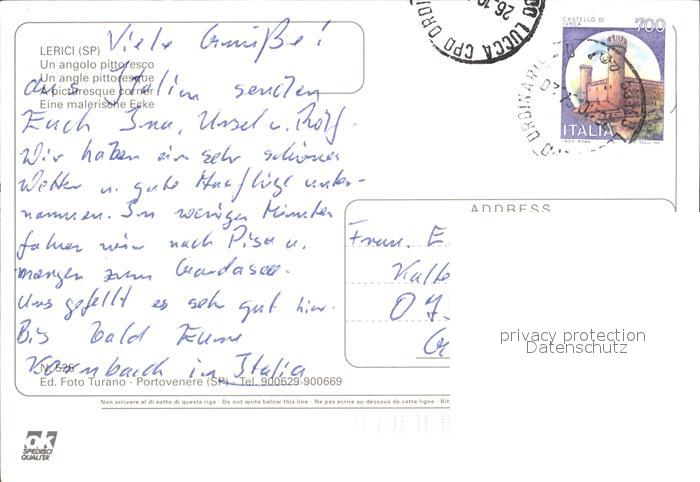 LERICI (SP)
Un angolo pittoresco
Un angle pittoresque
A picturesque corner
Eine malerische Ecke
Viele Grüße!
aus Italien senden
Euch Ina, Ursel u. Rolf.
Wir haben ein sehr schönes
Wetter u. gute Ausflüge unter-
nommen. In wenigen Minuten
fahren wir nach Pisa u.
morgen zum Gardasee.
Uns gefällt es sehr gut hier.
Bis bald Eure
in Italia
N. 525
Ed. Foto Turano - Portovenere (SP) - Tel. 900629-900669
Non scrivere al di sotto di questa riga - Do not write below this line - Ne pas écrire au dessous de cette ligne - Bit
ok
SPEDISCI
QUALITA'
LUCCA CPO ORDI
26-10
CASTELLO DI
IVREA
700
ITALIA
ORDINARIE
ADDRESS
Fam. E.
Kalte
O 7
G
privacy protection
Datenschutz